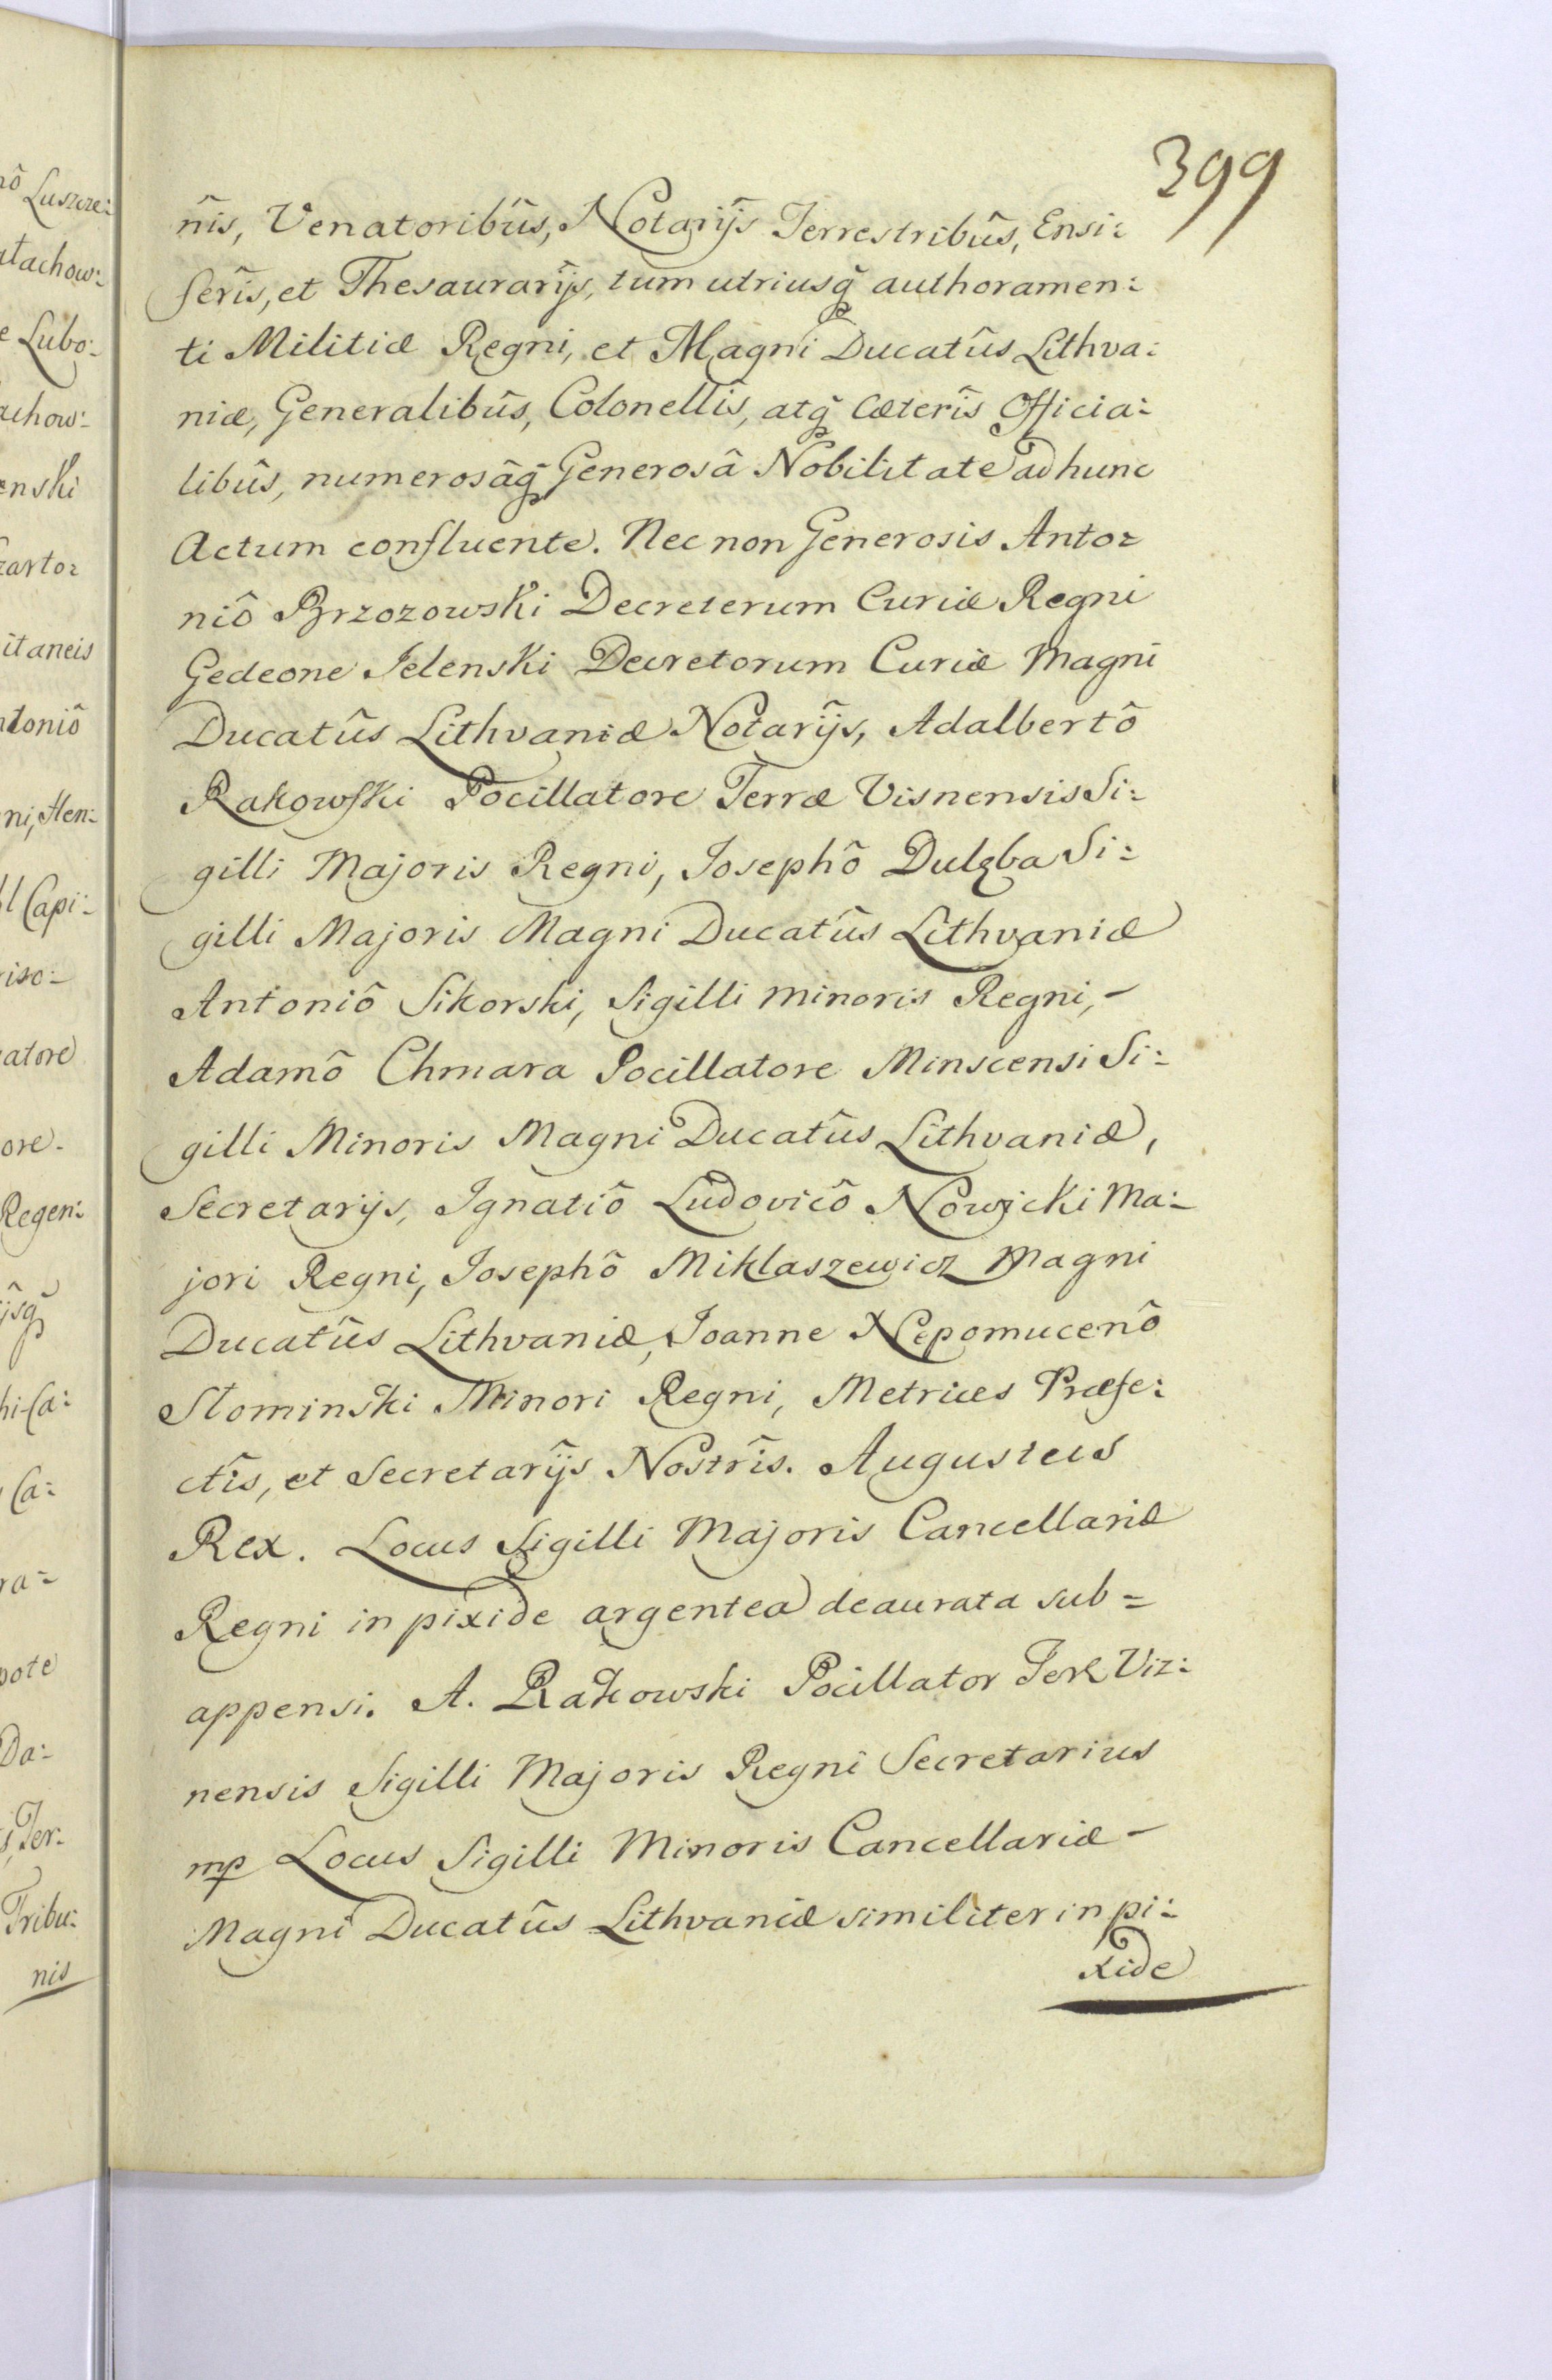 399
nîs, Venatoribûs, Notarijs Terrestribûs, Ensi:
ferîs, et Thesaurarijs, tum utriusq̃ authoramen:
ti Militiæ Regni, et Magni Ducatûs Lithva:
niæ, Generalibûs, Colonellîs, atq̃ cæterîs Officia:
libûs, numerosâq̃ Generosâ Nobilitate ad hunc
Actum confluente. Nec non Generosis Anto:
niô Brzozowski Decreterum Curiæ Regni
Gedeone Jelenski Decretorum Curiæ Magni
Ducatûs Lithvaniæ Notarîjs, Adalbertô
Rakowski Pocillatore Terræ Visnensis Si:
gilli Majoris Regni, Josephô Dulęba Si:
gilli Majoris Magni Ducatûs Lithvaniæ
Antoniô Sikorski, Sigilli minoris Regni, -
Adamô Chmara Pocillatore Minscensi Si:
gilli Minoris Magni Ducatûs Lithvaniæ,
Secretarijs, Ignatiô Ludovicô Nowicki Ma:
jori Regni, Josephô Miklaszewicz Magni
Ducatûs Lithvaniæ, Joanne Nepomucenô
Słominski Minori Regni, Metrices Præfe:
ctîs, et Secretarîjs Nostrîs. Augustus
Rex. Locus Sigilli Majoris Cancellariæ
Regni in pixide argentea deaurata sub=
appensi. A. Rakowski Pocillator Ter Viz:
nensis Sigilli Majoris Regni Secretarius
mp Locus Sigilli Minoris Cancellariæ -
Magni Ducatûs Lithvaniæ similiter in pi:
xide